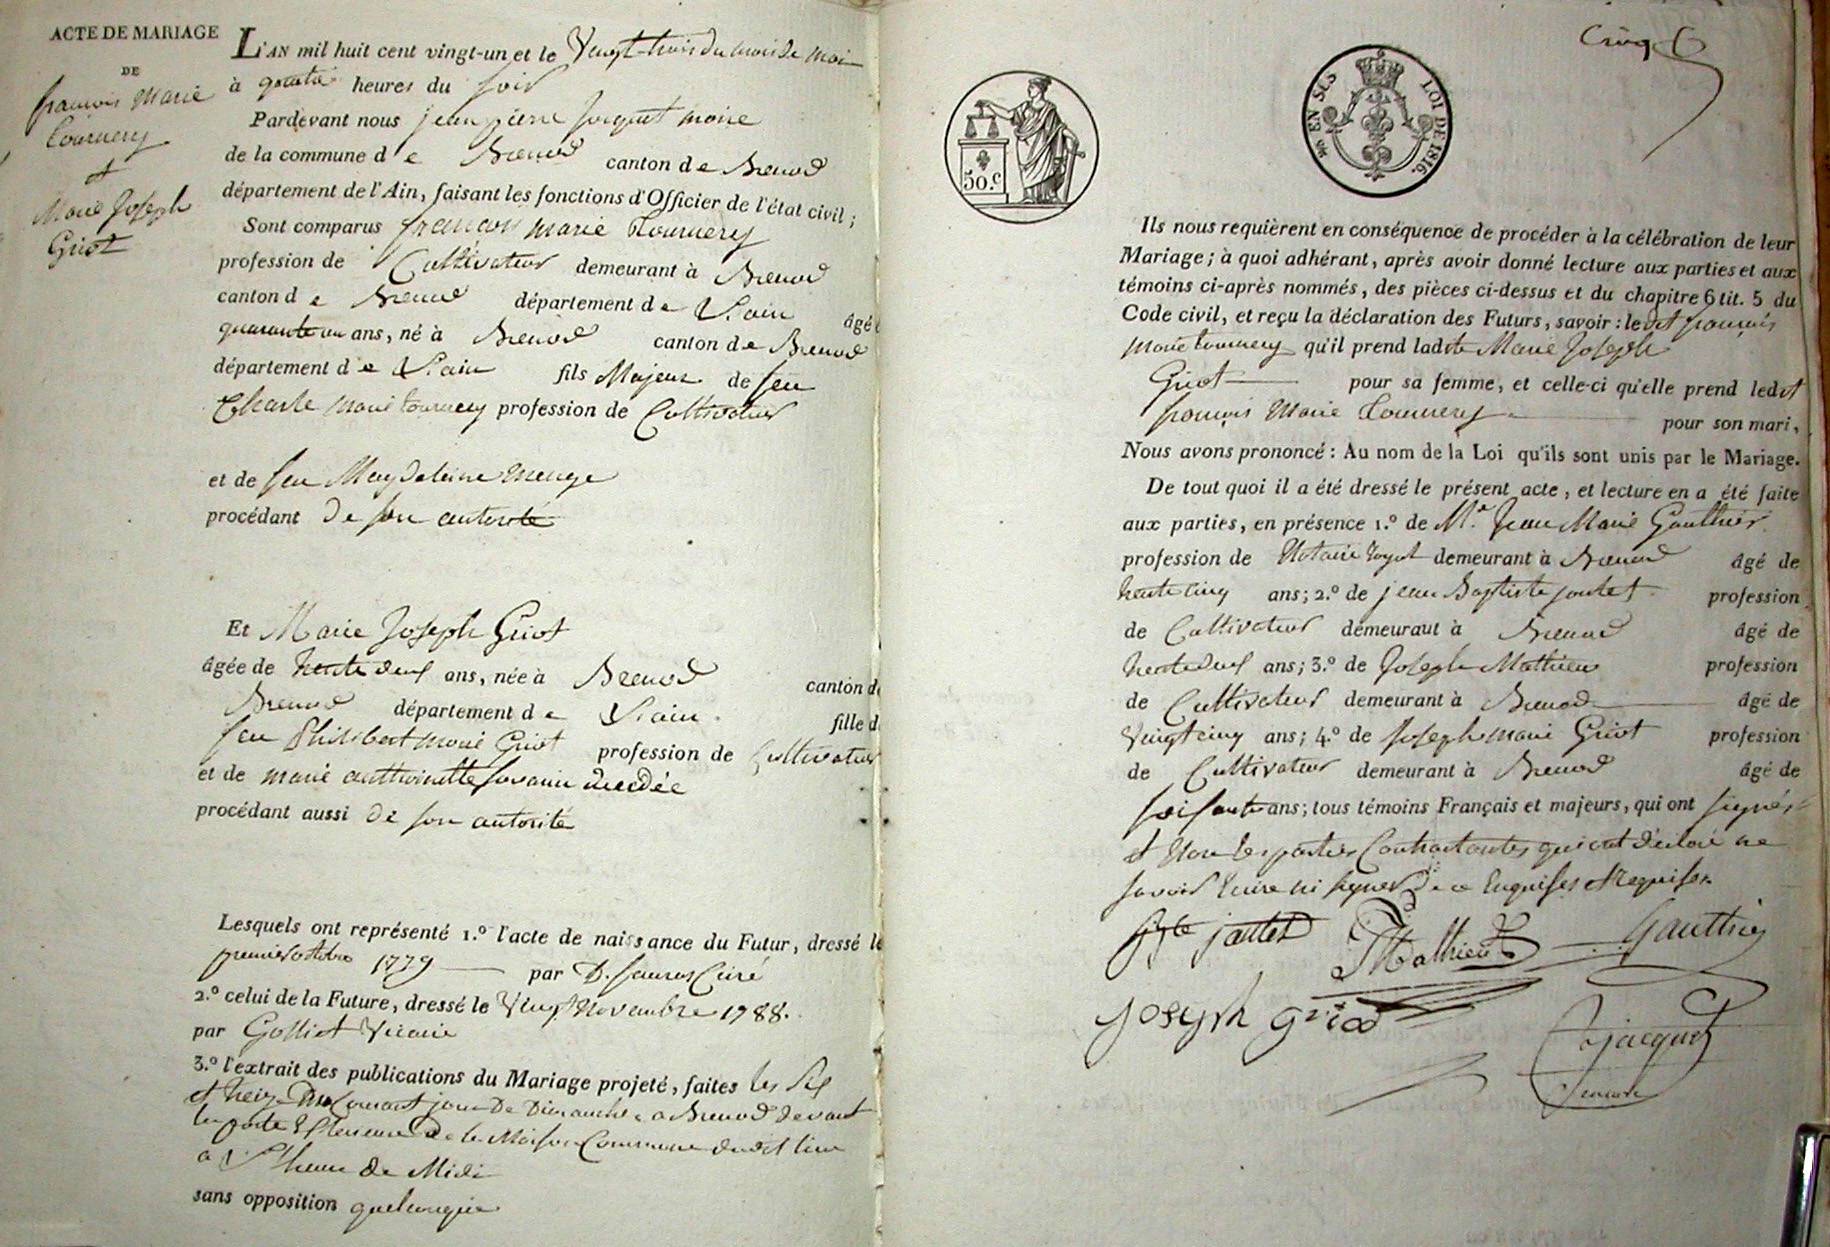 ACTE DE MARIAGE
DE
francois Marie
Tournery
et
Marie Joseph
Griot
L'AN mil huit cent vingt-un et le Vingt-trois du mois de mai
à quatre heures du soir
Pardevant nous jean pierre Jacquet maire
de la commune de Brenod canton de Brenod
département de l'Ain, faisant les fonctions d'Officier de l'état civil;
Sont comparus françois marie Tournery
profession de Cultivateur demeurant à Brenod
canton de Brenod département de L'ain âgé
quarante un ans, né à Brenod canton de Brenod
département de L'ain fils Majeur de feu
Charle marie tournery profession de Cultivateur
et de feu Magdeleine
procédant de son autorité
Et Marie Joseph Griot
âgée de trente deux ans, née à Brenod canton de
Brenod département de L'ain. fille d
feu Philibert marie Griot profession de Cultivateur
et de marie anthoinette décédée
procédant aussi de son autorité
Lesquels ont représenté 1.º l'acte de naissance du Futur, dressé le
premier octobre 1779 par Curé
2.º celui de la Future, dressé le Vingt Novembre 1788.
par Golliet Vicaire
3.º l'extrait des publications du Mariage projeté, faites les Six
et treize Du Courant jour De Dimanche a Brenod devant
la porte Exterieure de la Maison Commune dudit lieu
a L'heure de Midi
sans opposition quelconque
50.c
EN SUS LOI DE 1816.
Ils nous requièrent en conséquence de procéder à la célébration de leur
Mariage; à quoi adhérant, après avoir donné lecture aux parties et aux
témoins ci-après nommés, des pièces ci-dessus et du chapitre 6 tit. 5 du
Code civil, et reçu la déclaration des Futurs, savoir: ledit françois
marie tournery qu'il prend ladite Marie Joseph
Griot pour sa femme, et celle-ci qu'elle prend ledit
françois Marie Tournery pour son mari,
Nous avons prononcé: Au nom de la Loi qu'ils sont unis par le Mariage.
De tout quoi il a été dressé le présent acte, et lecture en a été faite
aux parties, en présence 1.º de M.e Jean Marie Gauthier
profession de Notaire royal demeurant à Brenod âgé de
trente cinq ans; 2.º de jean Baptiste joutet profession
de Cultivateur demeurant à Brenod âgé de
trente deux ans; 3.º de Joseph Mathieu profession
de Cultivateur demeurant à Brenod âgé de
Vingt cinq ans; 4.º de Joseph marie Griot profession
de Cultivateur demeurant à Brenod âgé de
soisante ans; tous témoins Français et majeurs, qui ont signés
et Non les parties Contractantes qui ont déclaré ne
savoir Ecrire ni signer de ce Enquises et requises
joutet Mathieu Gauthier
joseph griot
jacquet
maire